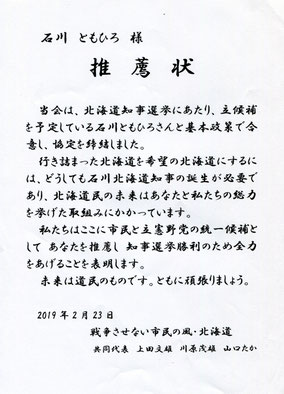 石川 ともひろ 様
推薦状
当会は、北海道知事選挙にあたり、立候補
を予定している石川ともひろさんと基本政策で合
意し、協定を締結しました。
行き詰まった北海道を希望の北海道にするに
は、どうしても石川北海道知事の誕生が必要で
あり、北海道民の未来はあなたと私たちの総力
を挙げた取組みにかかっています。
私たちはここに市民と立憲野党の統一候補と
して あなたを推薦し 知事選挙勝利のため全力
をあげることを表明します。
未来は道民のものです。ともに頑張りましょう。
2019年2月23日
戦争させない市民の風・北海道
共同代表 上田文雄 川原茂雄 山口たか